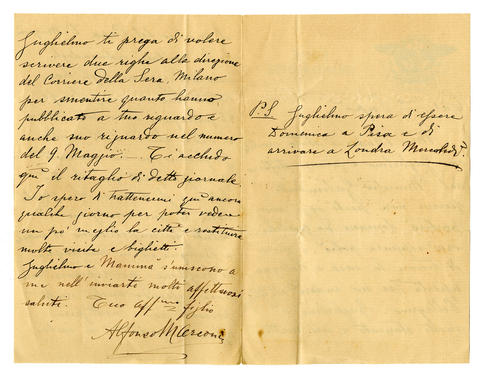 Guglielmo ti prega di volere
scrivere due righe alla direzione
del Corriere della Sera, Milano
per smentire quanto hanno
pubblicato a tuo reguardo e
anche suo riguardo nel numero
del 9. Maggio. — Ti accludo
qui il ritaglio di detto giornale.
Io spero di trattenermi qui ancora
qualche giorno per poter vedere
un po' meglio la città e restituire
molte visite e biglietti.
Guglielmo e Mammà s'uniscono a
me nell'inviarti molti affettuosi
saluti. Tuo aff.mo figlio
Alfonso Marconi
P.S Guglielmo spera di essere
Domenica a Pisa e di
arrivare a Londra Mercoledì.